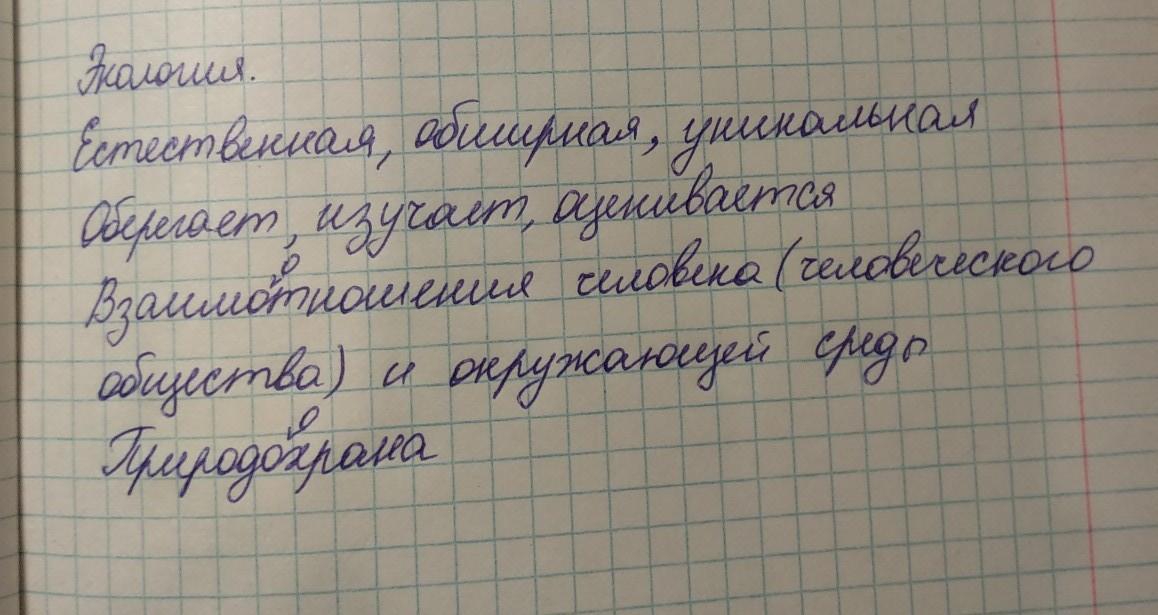 Экология.
Естественная, обширная, уникальная
Оберегает, изучает, оценивается
Взаимоотношения человека (человеческого
общества) и окружающей среды
Природоохрана